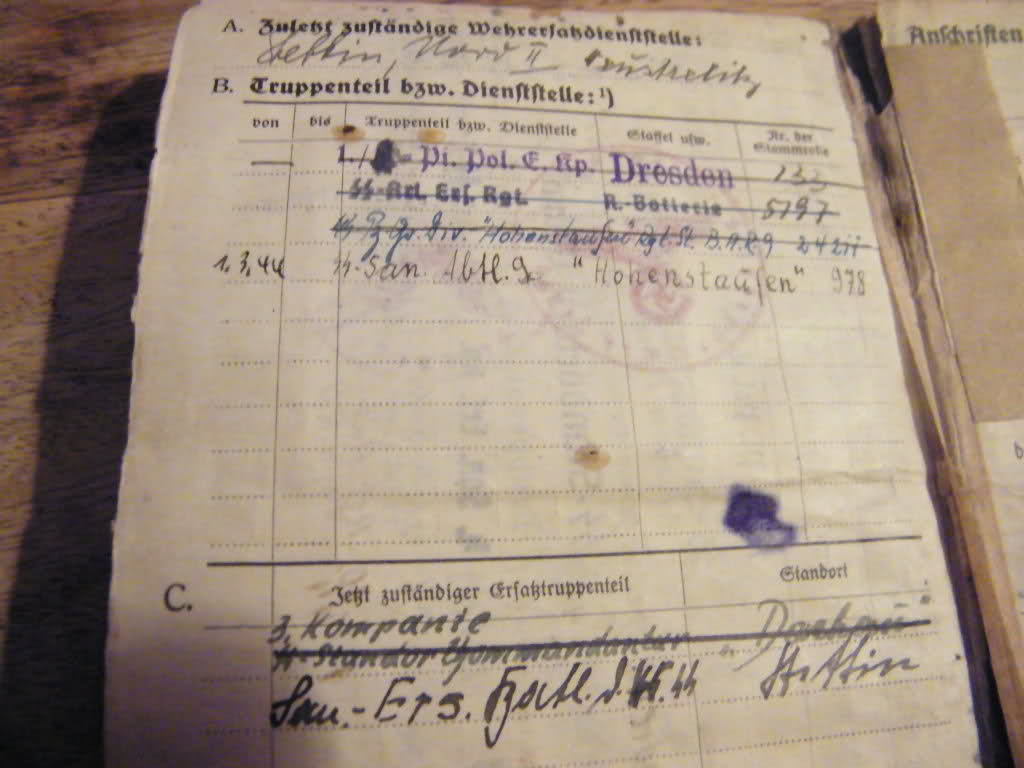 A. Zuletzt zuständige Wehrersatzdienststelle:
Stettin, Nord II
B. Truppenteil bzw. Dienststelle:¹)
von bis Truppenteil bzw. Dienststelle Staffel usw. Nr. der Stammrolle
— Pi. Pol. E. Kp. Dresden
ᛋᛋ-Art. Ers. Rgt. R.-Batterie 5797
ᛋᛋ Pz Gr Div. "Hohenstaufen" Rgt. St.
1.3.44 ᛋᛋ-San. Abtl. 9 "Hohenstaufen" 978
C. Jetzt zuständiger Ersatztruppenteil Standort
3. Kompanie
ᛋᛋ-Standort Kommandantur Dachau
San.-Ers. Batl. d. Stettin
Anschriften